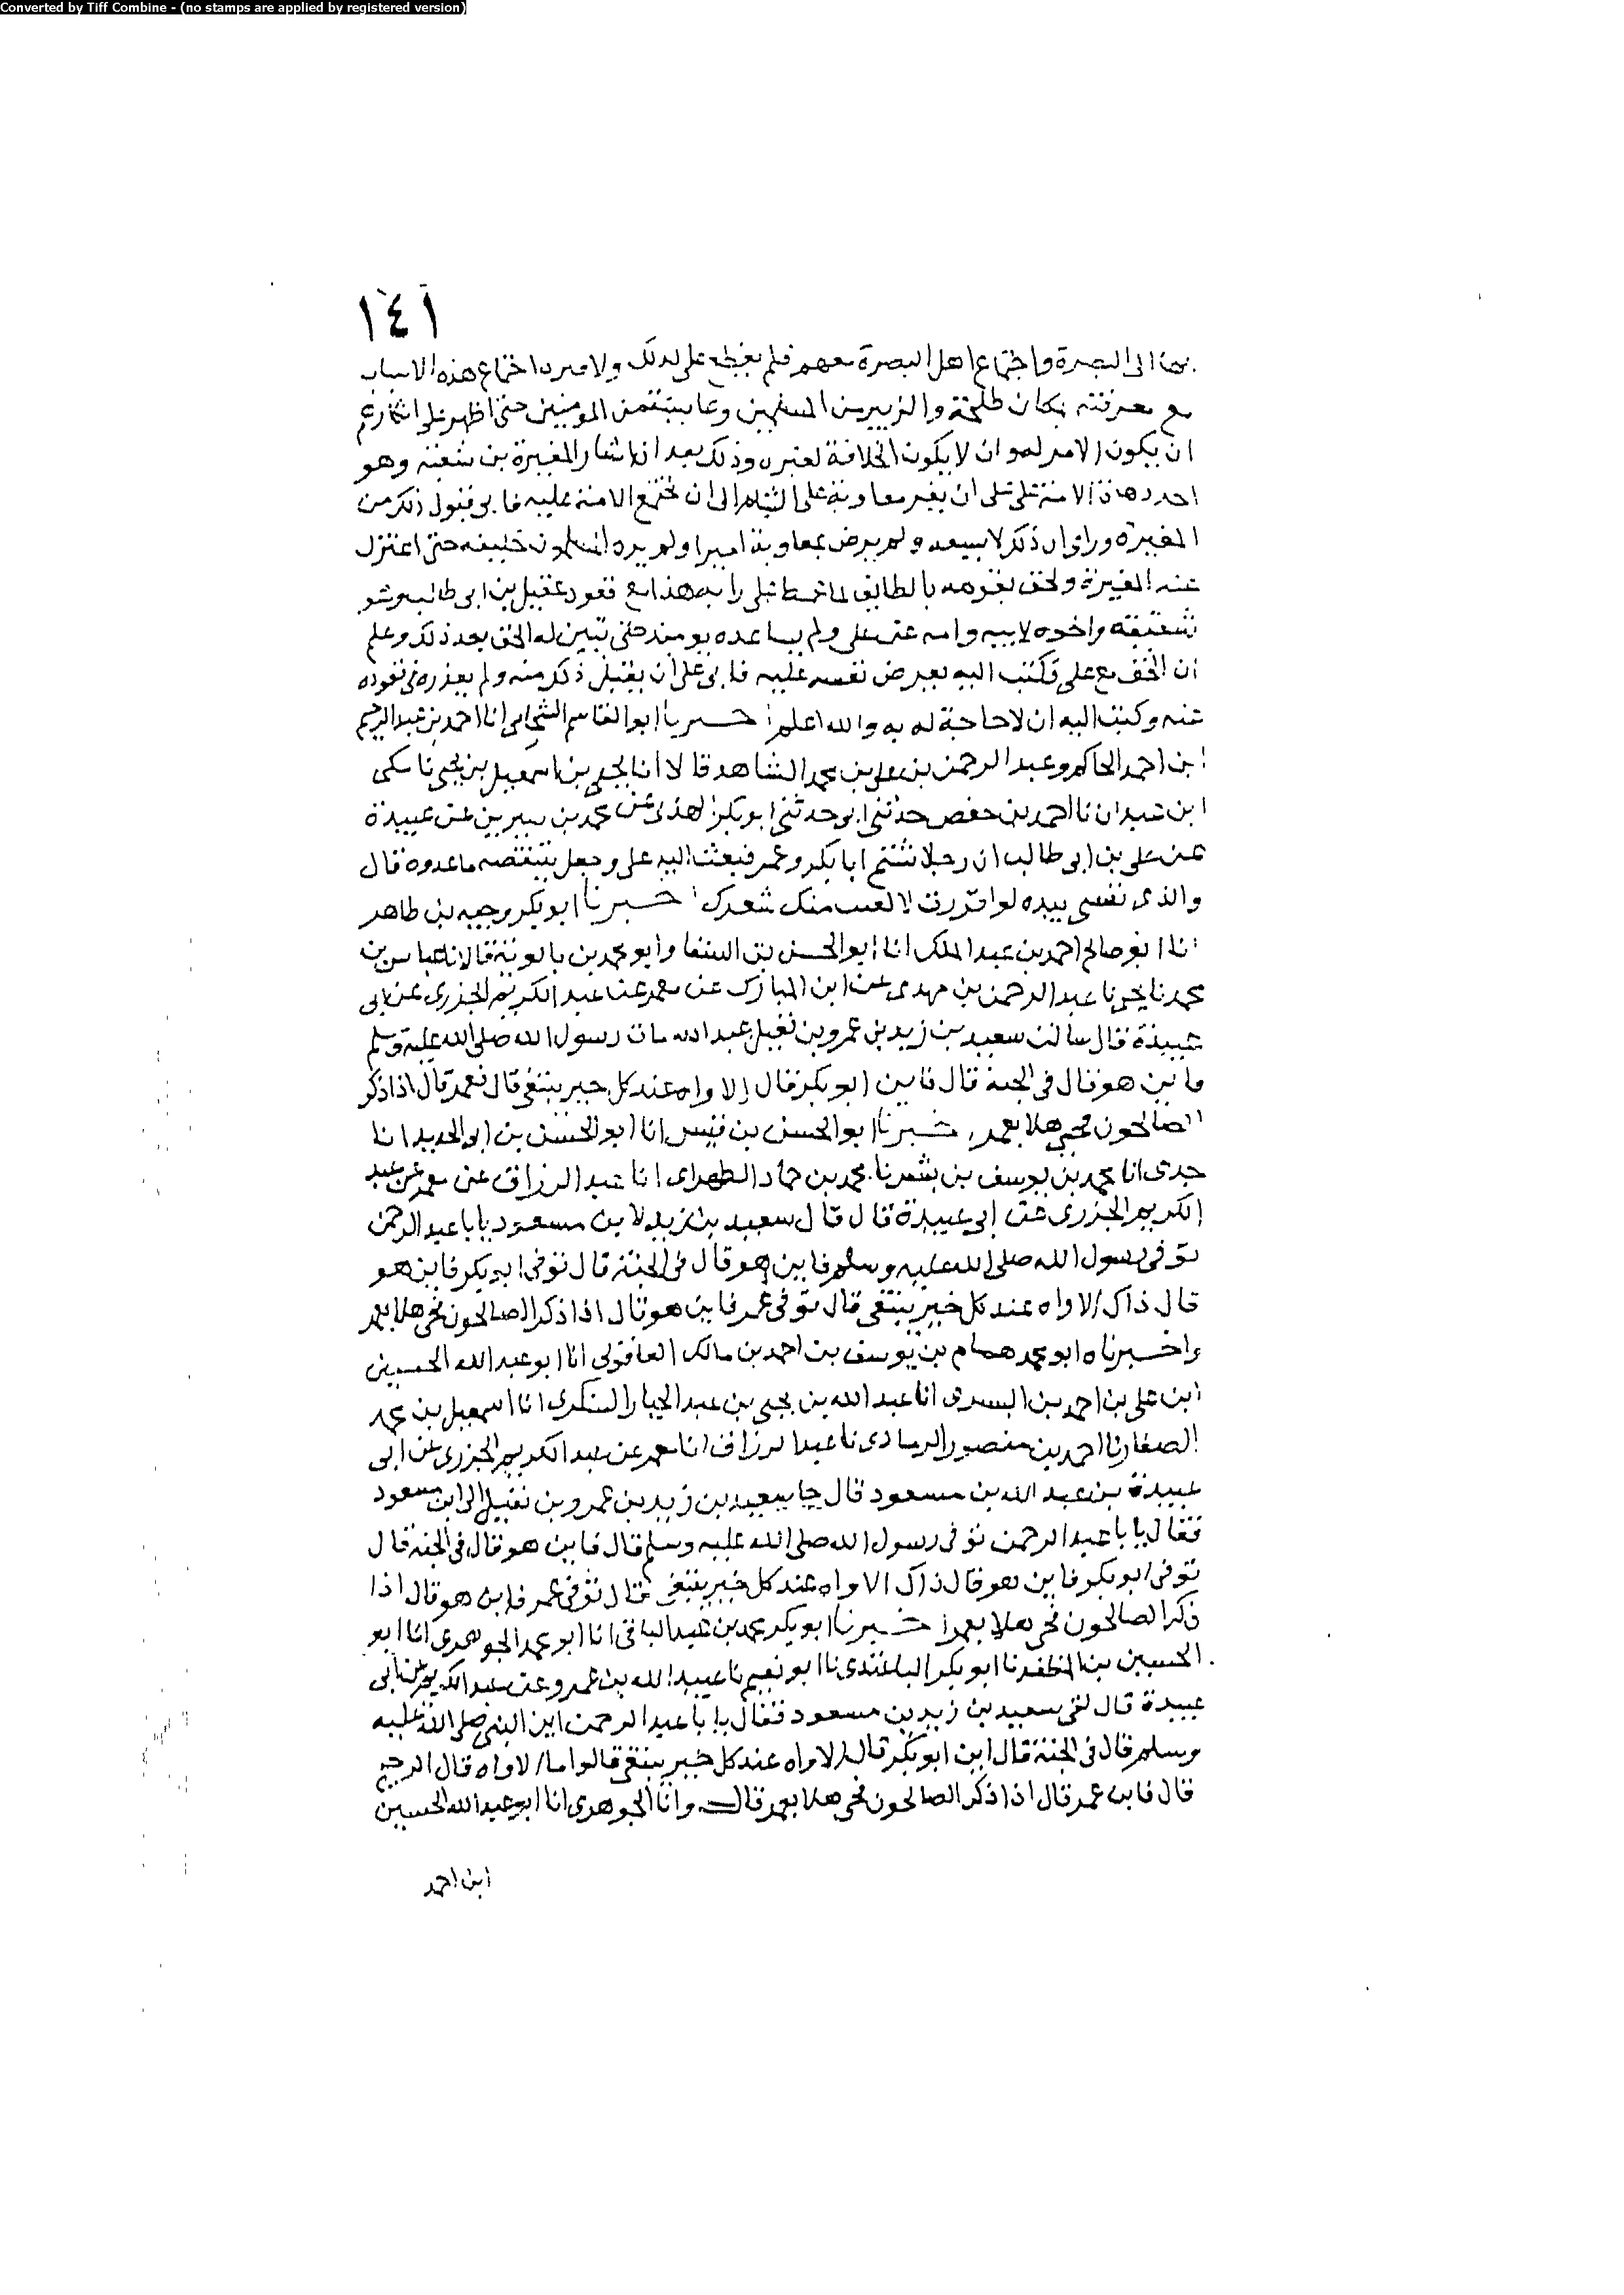 Converted by Tiff Combine - (no stamps are applied by registered version)
١٤١
بهما الى البصرة واجتماع اهل البصرة معهم فلم يفظع على لذلك ولا هذه الاسباب
مع معرفته بمكان طلحة والزبير من المسلمين وعايشة من المومنين حتى اظهر على
ان يكون الامر له وان لا يكون الخلافة لغيره وذلك بعد ان اشار المغيرة بن شعبة وهو
احد دهاة الامة على على ان يقر معاوية على الشام الى ان تجتمع الامة عليه فابى قبول ذلك من
المغيرة وراى ان ذلك لا يسعه ولم يرض بمعاوية اميرا ولم يره المسلمون خليفة حتى اعتزل
عنه المغيرة ولحق بقومه بالطايف على رايه هذا مع قعود عقيل بن ابى طالب وهو
شقيقه واخوه لابيه وامه عن على ولم يساعده يومئذ حتى تبين له الحق بعد ذلك وعلم
ان الحق مع على فكتب اليه يعرض نفسه عليه فابى على ان يقبل ذلك منه ولم يعذره فى قعوده
عنه وكتب اليه ان لا حاجة له به والله اعلم اخبرنا ابو القاسم الشحامى انا احمد بن عبد الرحيم
ابن احمد الحاكم وعبد الرحمن بن على بن محمد الشاهد قالا انا يحيى بن اسمعيل بن يحيى نا مكى
ابن عبدان نا احمد بن حفص حدثنى ابى حدثنى ابو بكر الهذلى عن محمد بن سيرين عن عبيدة
عن على بن ابى طالب ان رجلا شتم ابا بكر وعمر فبعث اليه على وجعل ينتقصه ما عدوه قال
والذى نفسى بيده لو اقررت لالقيت منك شعرك اخبرنا ابو بكر وجيه بن طاهر
انا ابو صالح احمد بن عبد الملك انا ابو الحسن بن السقا وابو محمد بن بالوية قالا نا عباس بن
محمد نا يحيى نا عبد الرحمن بن مهدى عن ابن المبارك عن معمر عن عبد الكريم الجزرى عن ابى
عبيدة قال سالت سعيد بن زيد بن عمرو بن نفيل عبد الله مات رسول الله صلى الله عليه وسلم
فاين هو قال فى الجنة قال فاين ابو بكر قال الاواه عند كل خير يبتغى قال فعمر قال اذا ذكر
الصالحون فحى هلا بعمر اخبرنا ابو الحسن بن قبيس انا ابو الحسن بن ابى الحديد انا
جدى انا محمد بن يوسف بن بشر نا محمد بن حماد الطهرانى انا عبد الرزاق عن معمر عن عبد
الكريم الجزرى عن ابى عبيدة قال قال سعيد بن زيد لابن مسعود يابا عبد الرحمن
توفى رسول الله صلى الله عليه وسلم فاين هو قال فى الجنة قال توفى ابو بكر فاين هو
قال ذاك الاواه عند كل خير يبتغى قال توفى عمر فاين هو قال اذا ذكر الصالحون فحى هلا بعمر
واخبرناه ابو محمد همام بن يوسف بن احمد بن مالك العاقولى انا ابو عبد الله الحسين
ابن على بن احمد بن البسرى انا عبد الله بن يحيى بن عبد الجبار السكرى انا اسمعيل بن محمد
الصفار نا احمد بن منصور الرمادى نا عبد الرزاق انا معمر عن عبد الكريم الجزرى عن ابى
عبيدة بن عبد الله بن مسعود قال جا سعيد بن زيد بن عمرو بن نفيل الى ابن مسعود
فقال يابا عبد الرحمن توفى رسول الله صلى الله عليه وسلم قال فاين هو قال فى الجنة قال
توفى ابو بكر فاين هو قال ذاك الاواه عند كل خير يبتغى قال توفى عمر فاين هو قال اذا
ذكر الصالحون فحى هلا بعمر اخبرنا ابو بكر محمد بن عبد الباقى انا ابو محمد الجوهرى انا ابو
الحسين بن المظفر نا ابو بكر الباغندى نا ابو نعيم نا عبيد الله بن عمرو عن عبد الكريم عن ابى
عبيدة قال لقى سعيد بن زيد بن مسعود فقال يابا عبد الرحمن اين النبى صلى الله عليه
وسلم قال فى الجنة قال اين ابو بكر قال الاواه عند كل خير يبتغى قالوا ما الاواه قال الرحيم
قال فاين عمر قال اذا ذكر الصالحون فحى هلا بعمر قال وانا الجوهرى انا ابو عبد الله الحسين
ابن احمد